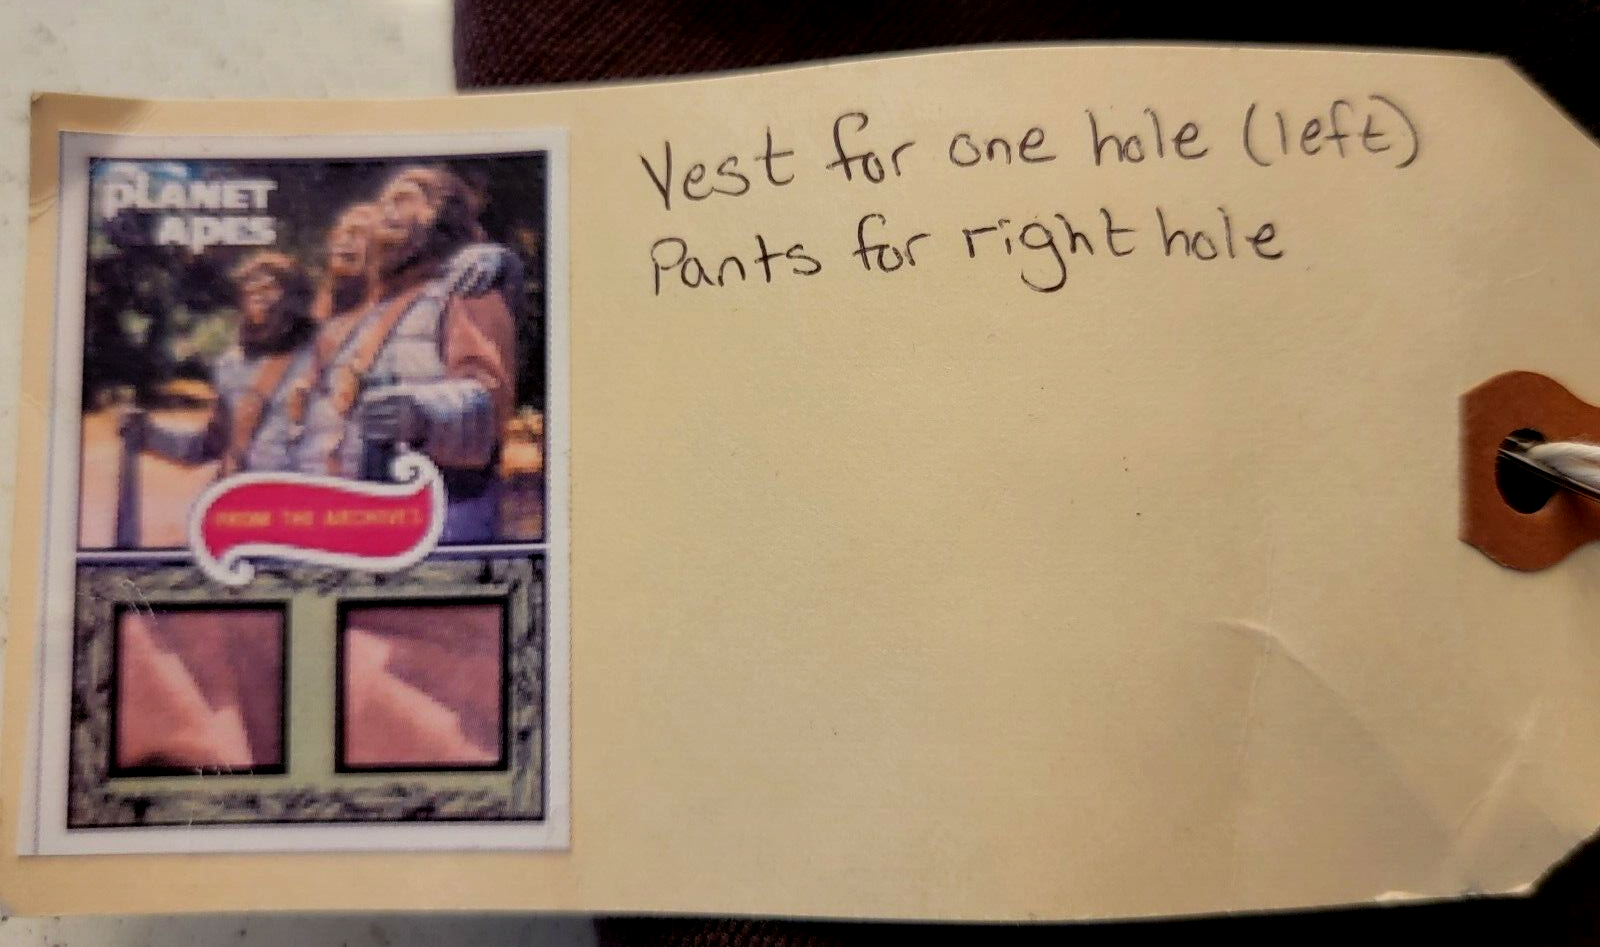 PLANET
APES
FROM THE ARCHIVES
Vest for one hole (left)
Pants for right hole